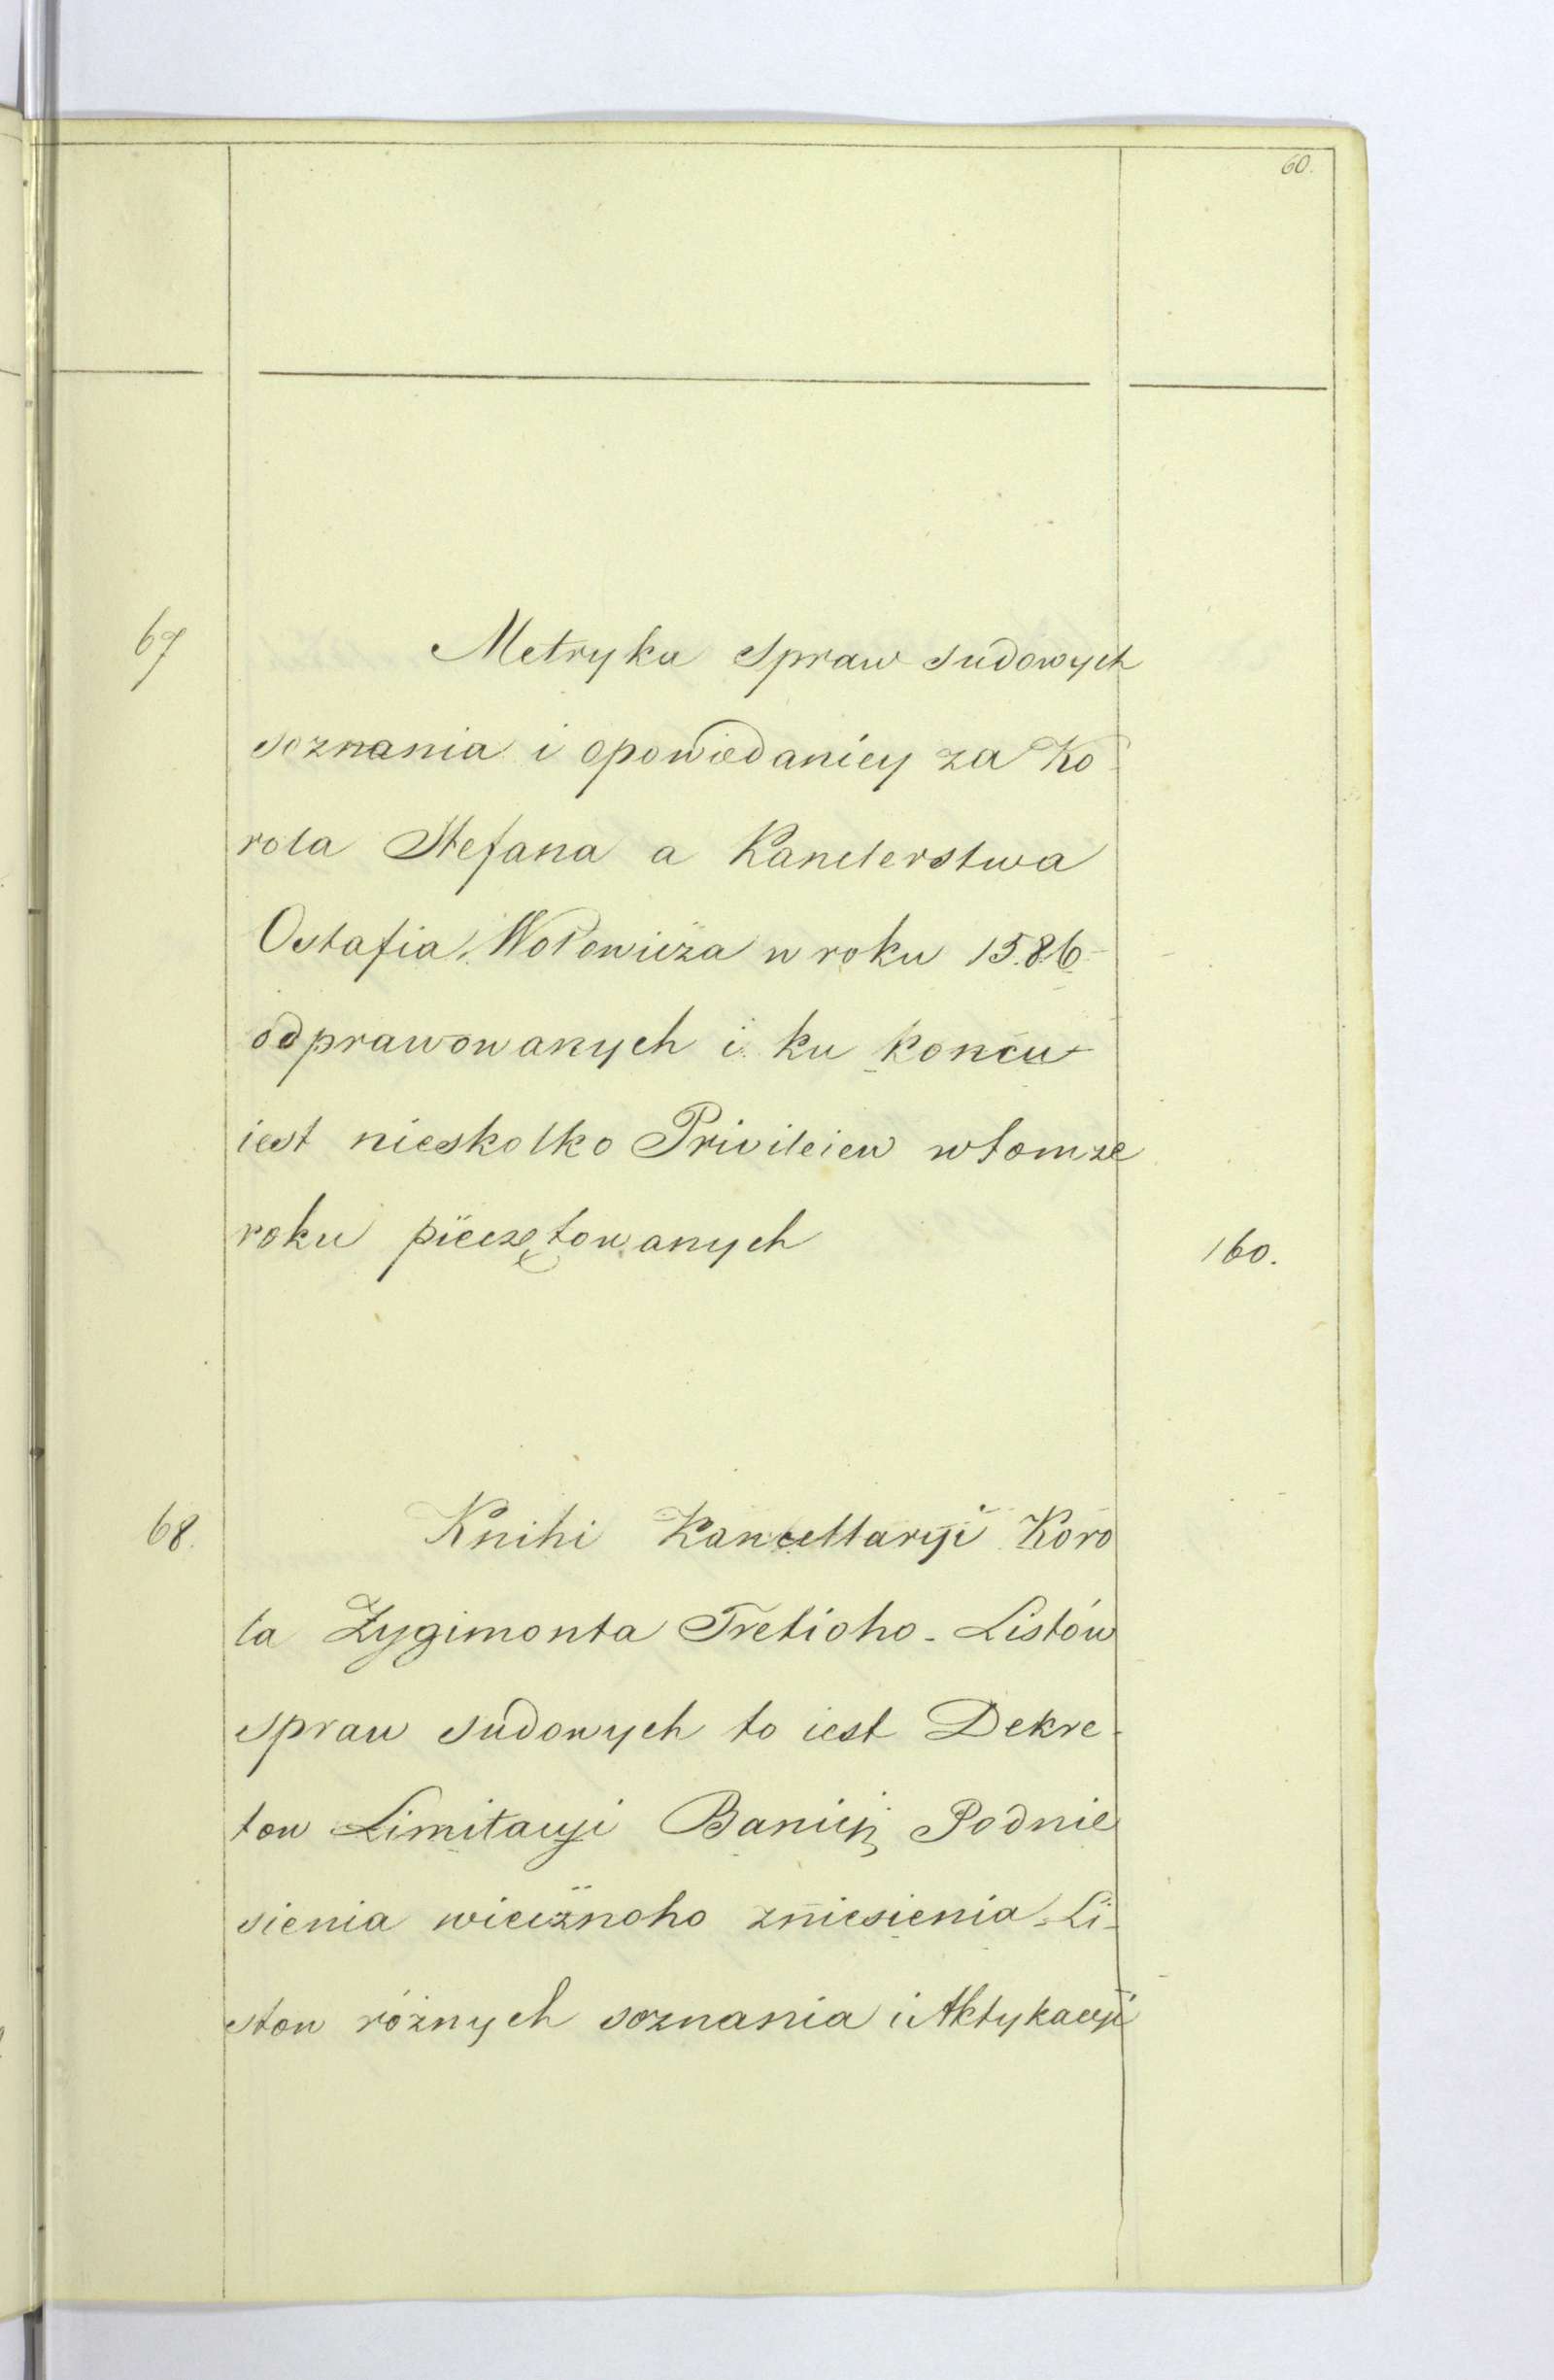 60.
67
Metryka Spraw sudowych
soznania i opowiedaniey za Ko
rola Stefana a Kanclerstwa
Ostafia Wołowicza w roku 1586
odprawowanych i ku koncu
iest nieskolko Privileiew wtomze
roku pieczętowanych
160.
68.
Knihi Kancellaryi Koro
la Zygimonta Tretioho - Listów
spraw sudowych to iest Dekre-
tow Limitacyi Banicji Podnie
sienia wiecznoho zniesienia - Li-
stow różnych soznania i Aktykacyi